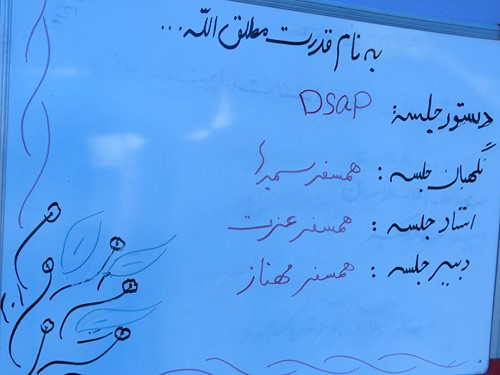 به نام قدرت مطلق الله...
دستور جلسه: DSAP
نگهبان جلسه: همسفر سمیرا
استاد جلسه: همسفر عزت
دبیر جلسه: همسفر مهناز